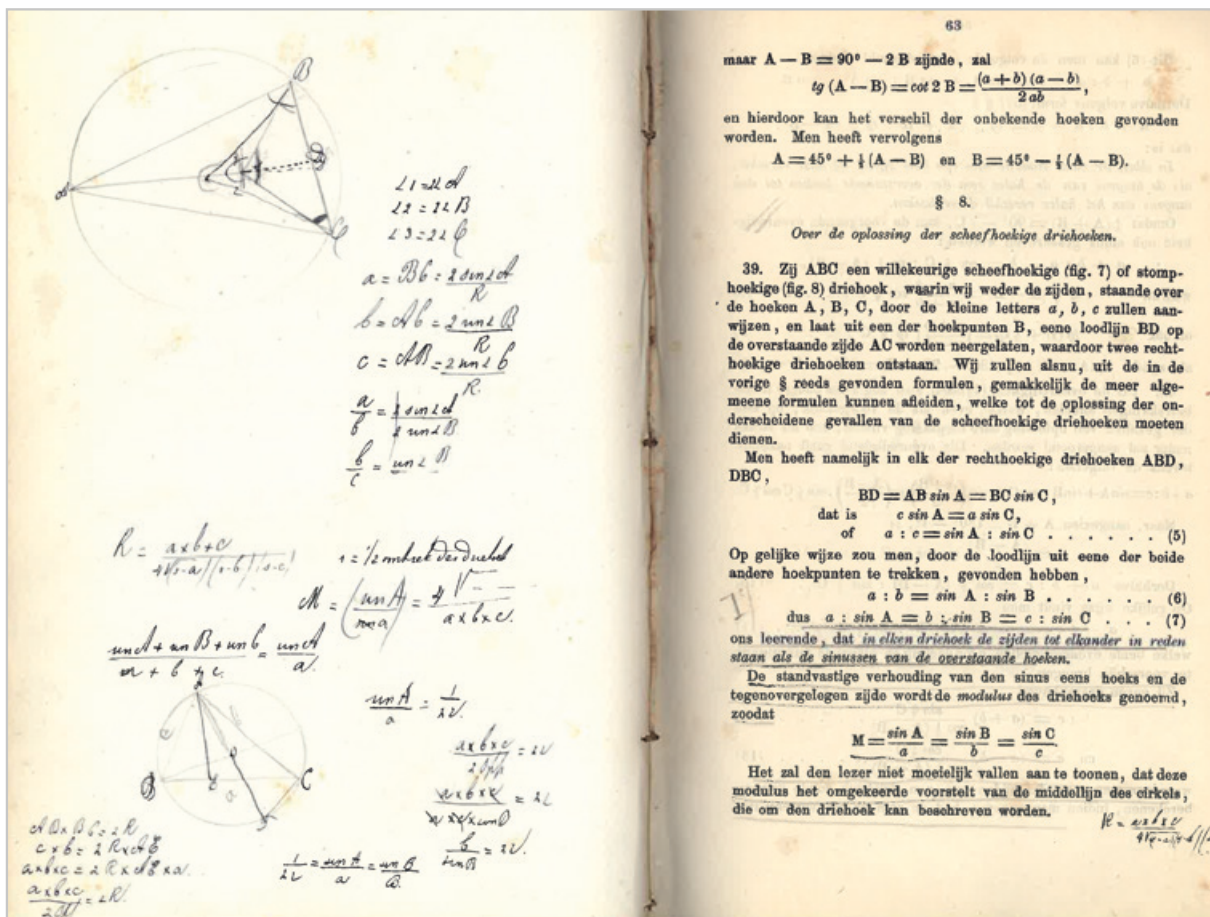 B
A
C
∠1 = 2∠A
∠2 = 2∠B
∠3 = 2∠C
a = BC = 2 sin∠A
R
b = AC = 2 sin∠B
R
c = AB = 2 sin∠C
R
a = 2 sin∠A
b 2 sin∠B
b = sin∠B
c
R = a×b×c
s = 1/2 omtrek der driehoek
M = (sin A) = 4√
a a×b×c.
sin A + sin B + sin C = sin A
a + b + c. a.
sin A = 1
a 2r.
B
C
a×b×c = 2r
2 Opp
b = 2r.
sin B
c×b = 2R×AE
a×b×c = 2R×AE×a.
a×b×c = 2R.
1 = sin A = sin B
2r a B.
63
maar A — B = 90° — 2 B zijnde, zal
tg (A — B) = cot 2 B = (a + b) (a — b)
2 ab,
en hierdoor kan het verschil der onbekende hoeken gevonden
worden. Men heeft vervolgens
A = 45° + ½ (A — B) en B = 45° — ½ (A — B).
§ 8.
Over de oplossing der scheefhoekige driehoeken.
39. Zij ABC een willekeurige scheefhoekige (fig. 7) of stomp-
hoekige (fig. 8) driehoek, waarin wij weder de zijden, staande over
de hoeken A, B, C, door de kleine letters a, b, c zullen aan-
wijzen, en laat uit een der hoekpunten B, eene loodlijn BD op
de overstaande zijde AC worden neergelaten, waardoor twee recht-
hoekige driehoeken ontstaan. Wij zullen alsnu, uit de in de
vorige § reeds gevonden formulen, gemakkelijk de meer alge-
meene formulen kunnen afleiden, welke tot de oplossing der on-
derscheidene gevallen van de scheefhoekige driehoeken moeten
dienen.
Men heeft namelijk in elk der rechthoekige driehoeken ABD,
DBC,
BD = AB sin A = BC sin C,
dat is c sin A = a sin C,
of a : c = sin A : sin C . . . . . . (5)
Op gelijke wijze zou men, door de loodlijn uit eene der beide
andere hoekpunten te trekken, gevonden hebben,
a : b = sin A : sin B . . . . . . (6)
dus a : sin A = b : sin B = c : sin C . . . (7)
ons leerende, dat in elken driehoek de zijden tot elkander in reden
staan als de sinussen van de overstaande hoeken.
De standvastige verhouding van den sinus eens hoeks en de
tegenovergelegen zijde wordt de modulus des driehoeks genoemd,
zoodat
M = sin A = sin B = sin C
a b c.
Het zal den lezer niet moeielijk vallen aan te toonen, dat deze
modulus het omgekeerde voorstelt van de middellijn des cirkels,
die om den driehoek kan beschreven worden.
R = a×b×c